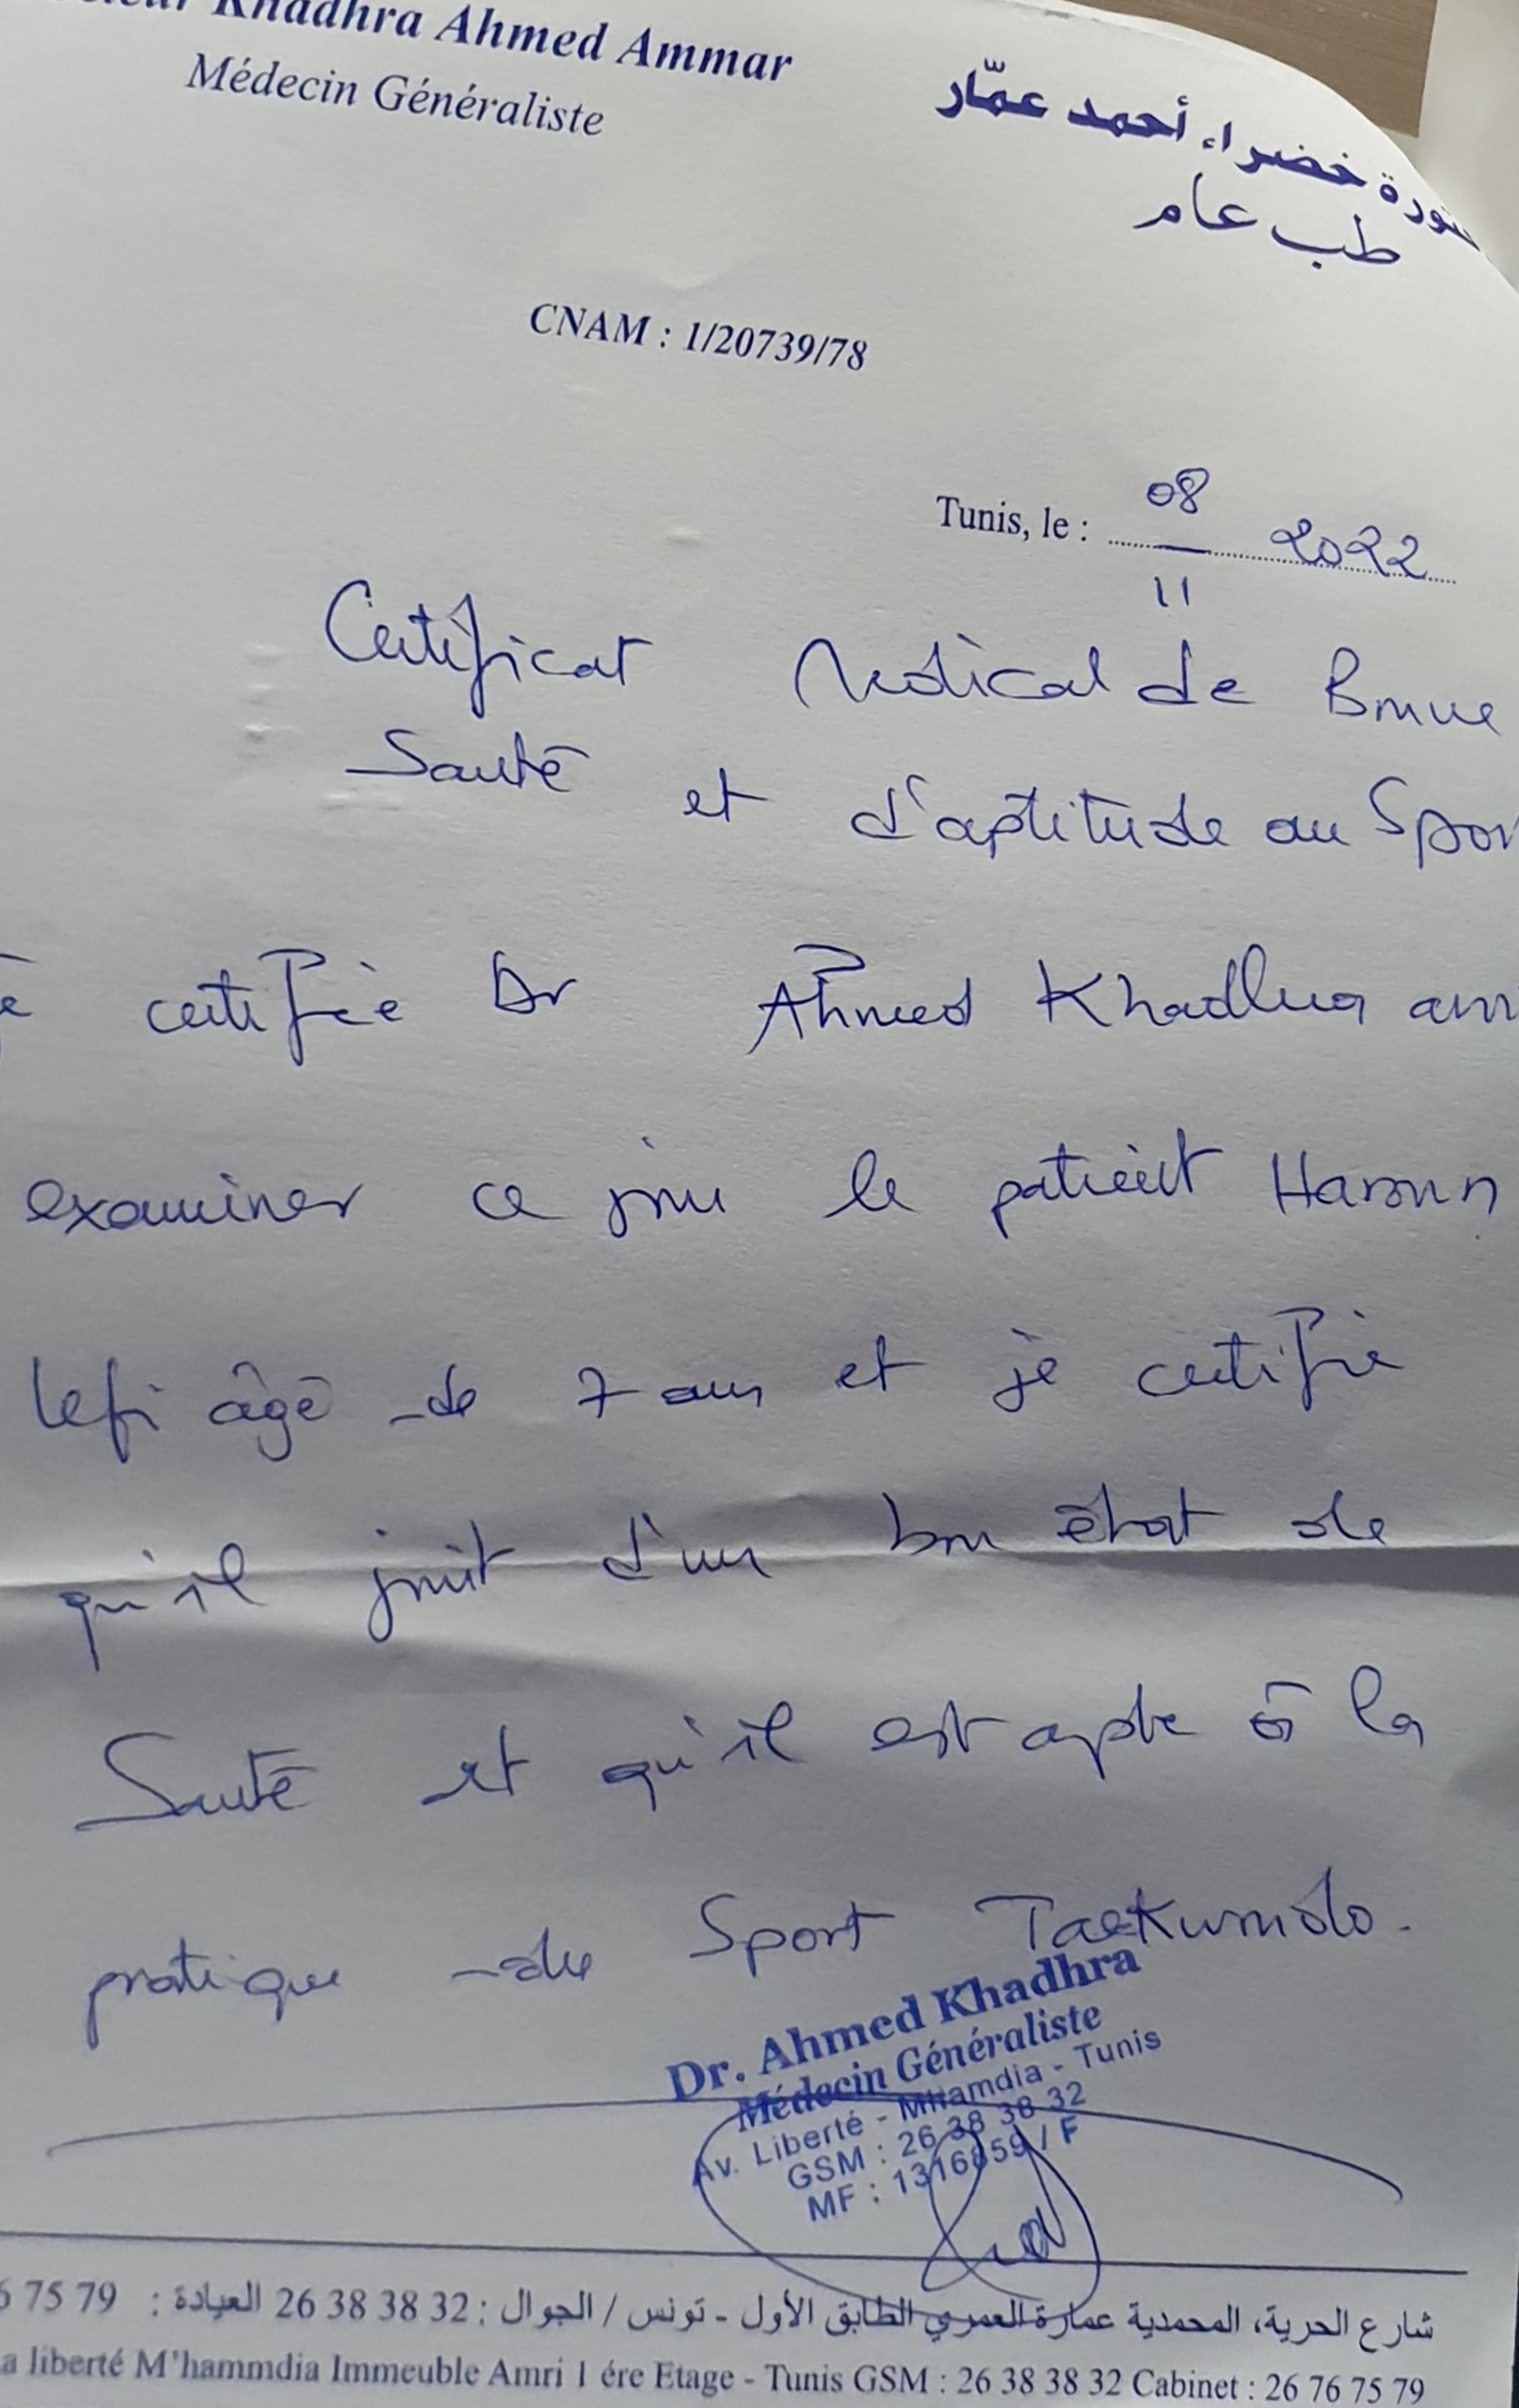 Khadhra Ahmed Ammar
Médecin Généraliste
خضراء أحمد عمّار
طب عام
CNAM : 1/20739/78
Tunis, le : 08/11 2022
Certificat Médical de Bonne
Santé et d'aptitude au Spor
certifie Dr Ahmed Khadhra
examiner ce jour le patient Haroun
lefi âgé de 7 ans et je certifie
qu'il jouit d'un bon état de
Santé et qu'il est apte à la
pratique du Sport Taekwondo.
Dr. Ahmed Khadhra
Médecin Généraliste
Av. Liberté - Mhamdia - Tunis
GSM : 26 38 38 32
MF : 1316859 / F
شارع الحرية، المحمدية عمارة العمري الطابق الأول - تونس / الجوال : 32 38 38 26 العيادة : 79 75
liberté M'hammdia Immeuble Amri 1 ére Etage - Tunis GSM : 26 38 38 32 Cabinet : 26 76 75 79